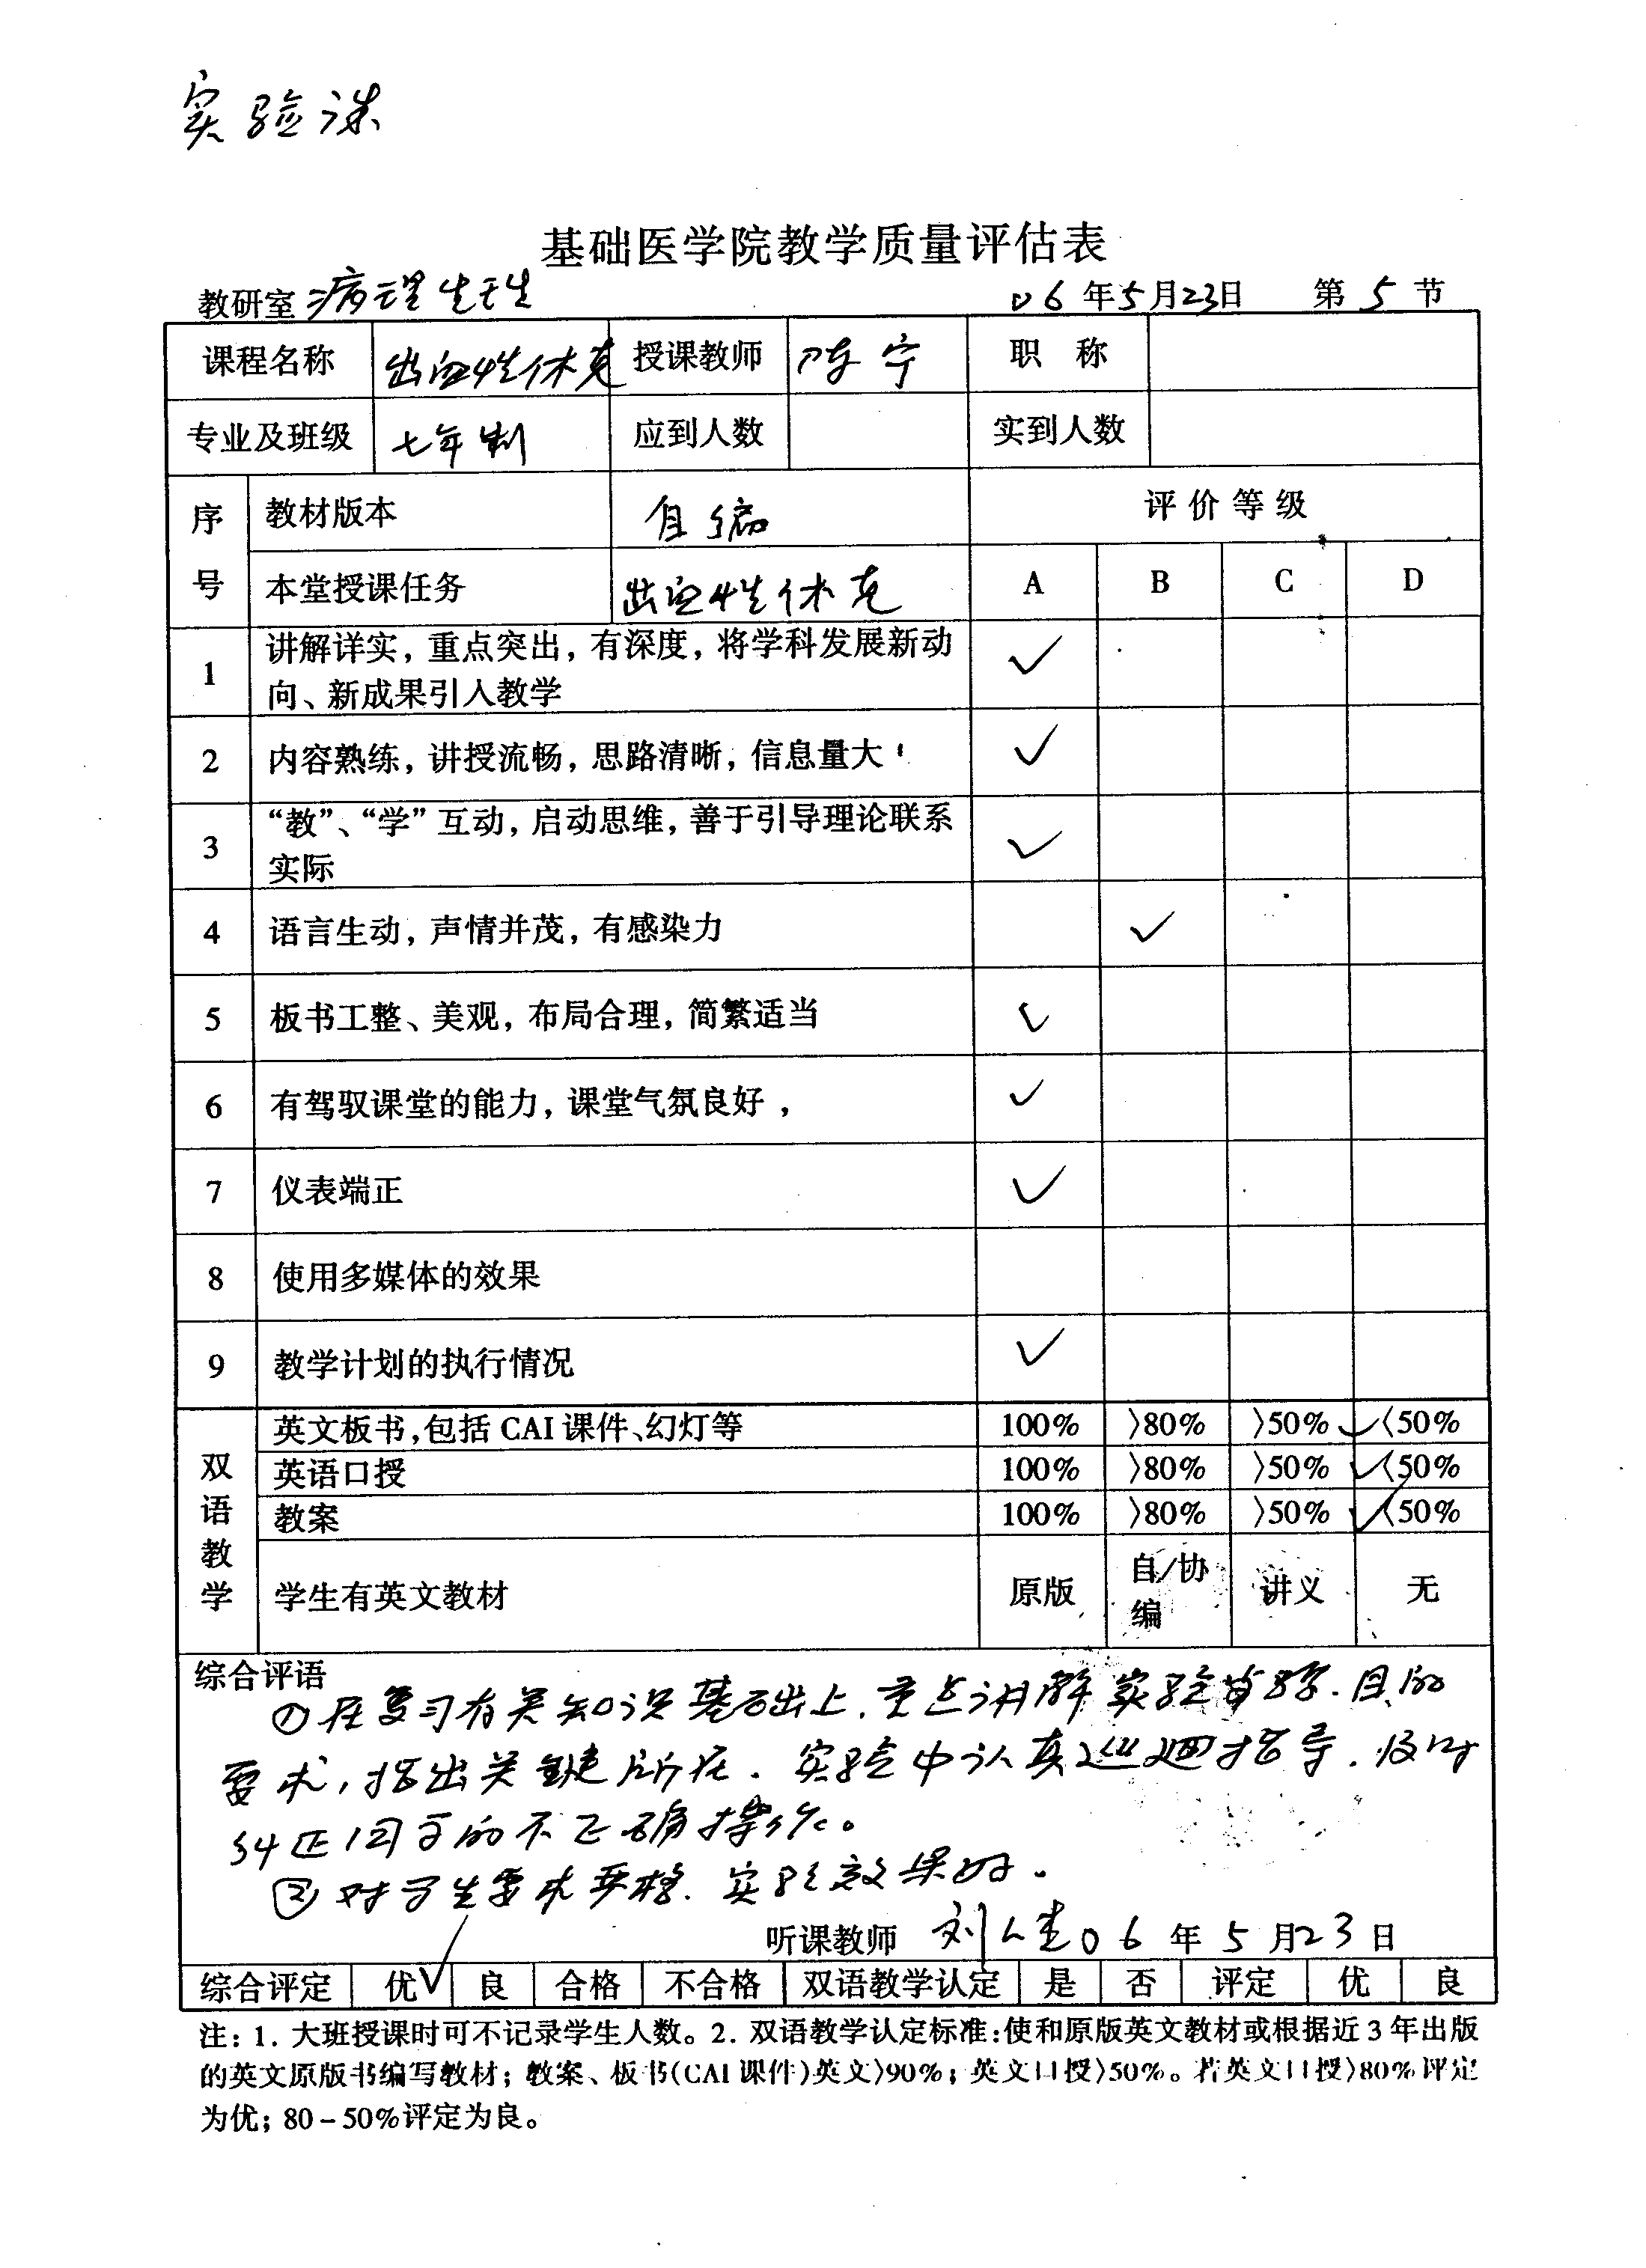 实验课
基础医学院教学质量评估表
教研室 病理生理 06年5月23日 第5节
课程名称 出血性休克 授课教师 陈宁 职称
专业及班级 七年制 应到人数 实到人数
序号 教材版本 自编 评价等级
本堂授课任务 出血性休克 A B C D
1 讲解详实，重点突出，有深度，将学科发展新动
向、新成果引入教学 ✓
2 内容熟练，讲授流畅，思路清晰，信息量大 ✓
3 “教”、“学”互动，启动思维，善于引导理论联系
实际 ✓
4 语言生动，声情并茂，有感染力 ✓
5 板书工整、美观，布局合理，简繁适当 ✓
6 有驾驭课堂的能力，课堂气氛良好， ✓
7 仪表端正 ✓
8 使用多媒体的效果
9 教学计划的执行情况 ✓
双语教学
英文板书，包括CAI课件、幻灯等 100% 〉80% 〉50% ✓〈50%
英语口授 100% 〉80% 〉50% ✓〈50%
教案 100% 〉80% 〉50% ✓〈50%
学生有英文教材 原版 自/协编 讲义 无
综合评语
①在复习有关知识基础上，重点讲解实验步骤.目的
要求，指出关键所在．实验中认真巡迴指导．及时
纠正同学的不正确操作。
②对学生要求严格．实验效果好．
听课教师 刘 06年5月23日
综合评定 优✓ 良 合格 不合格 双语教学认定 是 否 评定 优 良
注：1. 大班授课时可不记录学生人数。2. 双语教学认定标准：使和原版英文教材或根据近3年出版
的英文原版书编写教材；教案、板书(CAI课件)英文〉90%；英文口授〉50%。若英文口授〉80%评定
为优；80－50%评定为良。